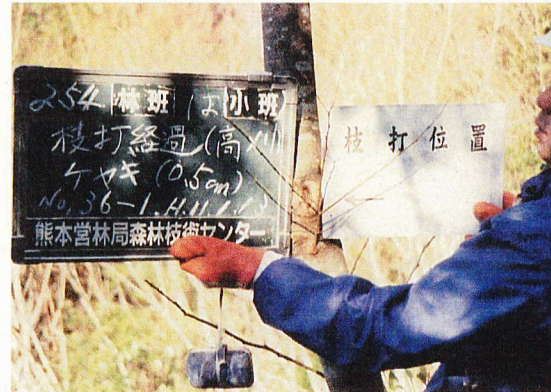 254 林班 は 小班
枝打経過(高川)
ケヤキ(0.5cm)
No.36-1.H.11.1.13
熊本営林局森林技術センター
枝打位置